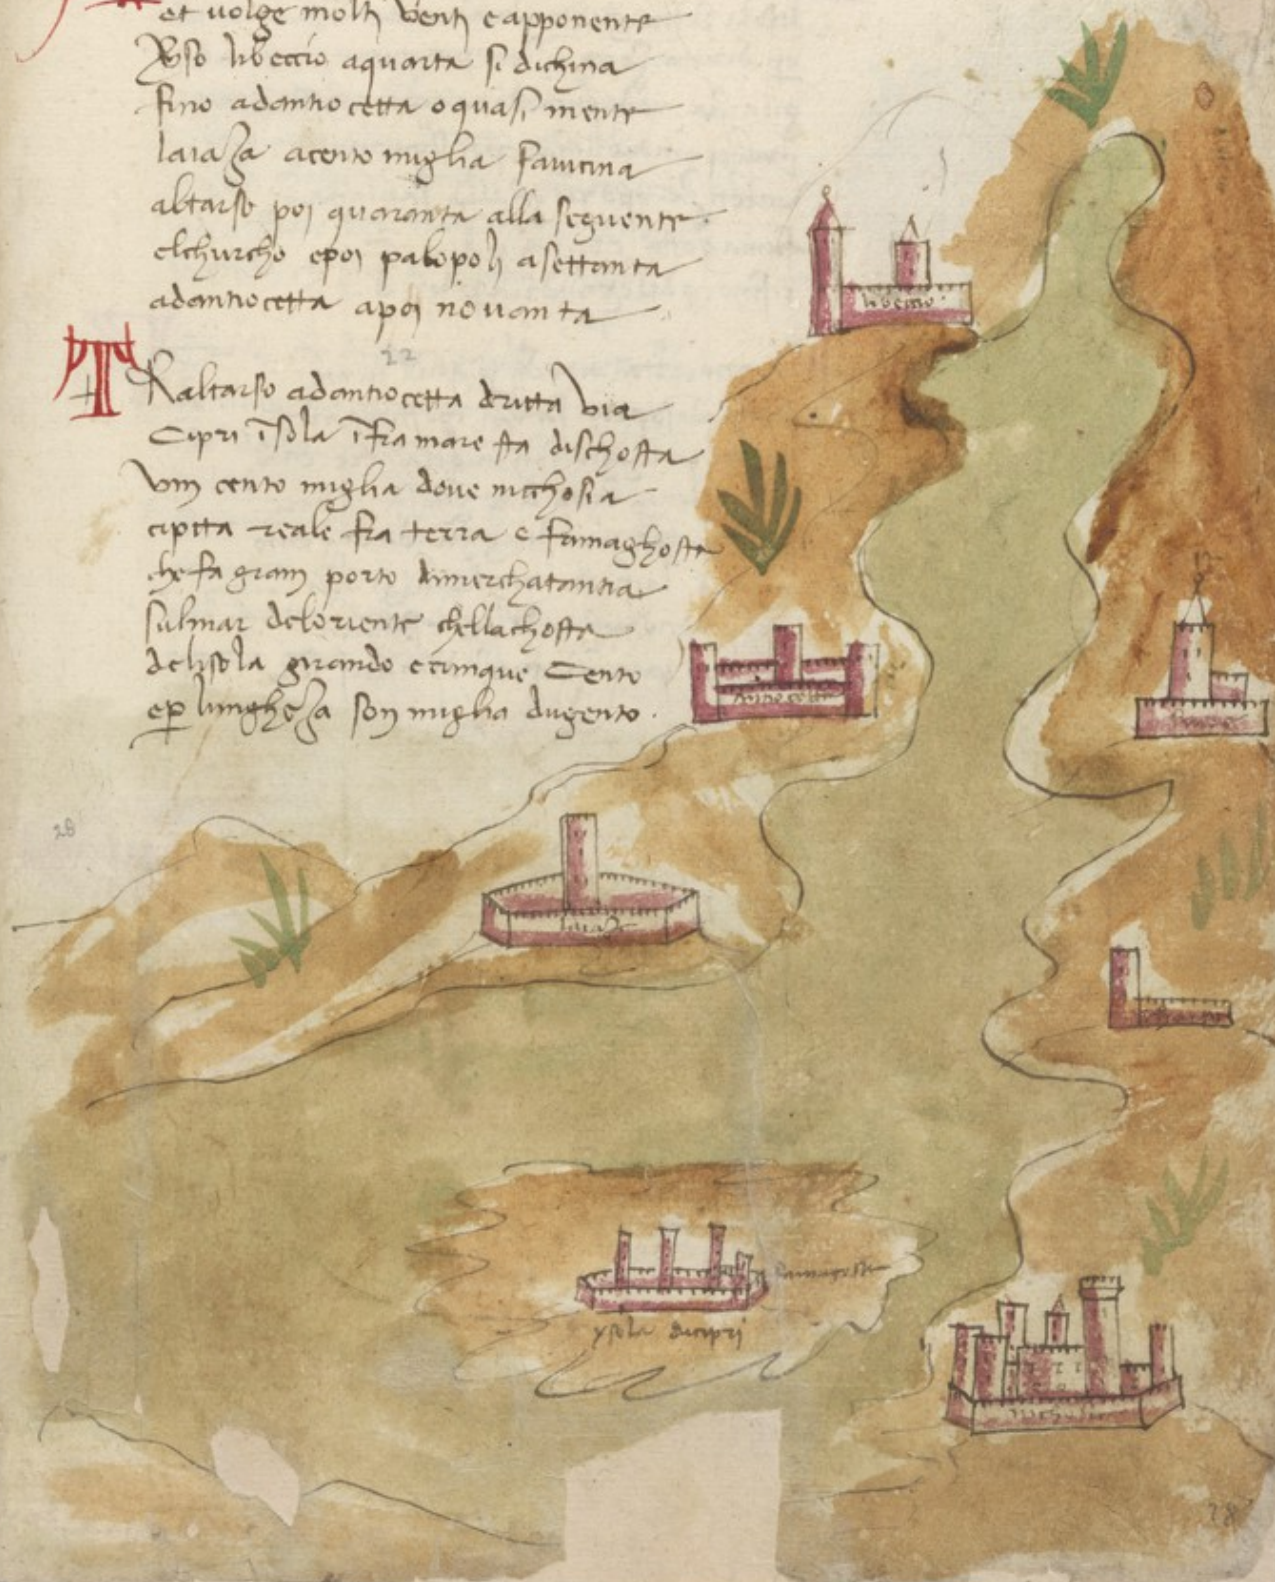 et volge molti venti e apponente
Vso libeccio aquarta si dichina
fino adantiocetta o quasi mente
laiaza acento miglia savicina
altarso poi quaranta alla seguente
elchurcho epoi palopoli asettanta
adantiocetta apoi novanta
22
TRaltarso adantiocetta dritta via
Cipri isola ifra mare sta dischosta
vm cento miglia dove nicchosia
cipta reale fra terra e famaghosta
che fa gram porto dimerchatantia
sulmar deloriente chella chosta
delisola girando ecinque Cento
e p lungheza son miglia dugento.
libeccio
antiocetta
28
laiaza
famagosta
ysola dicipri
nichosia
28